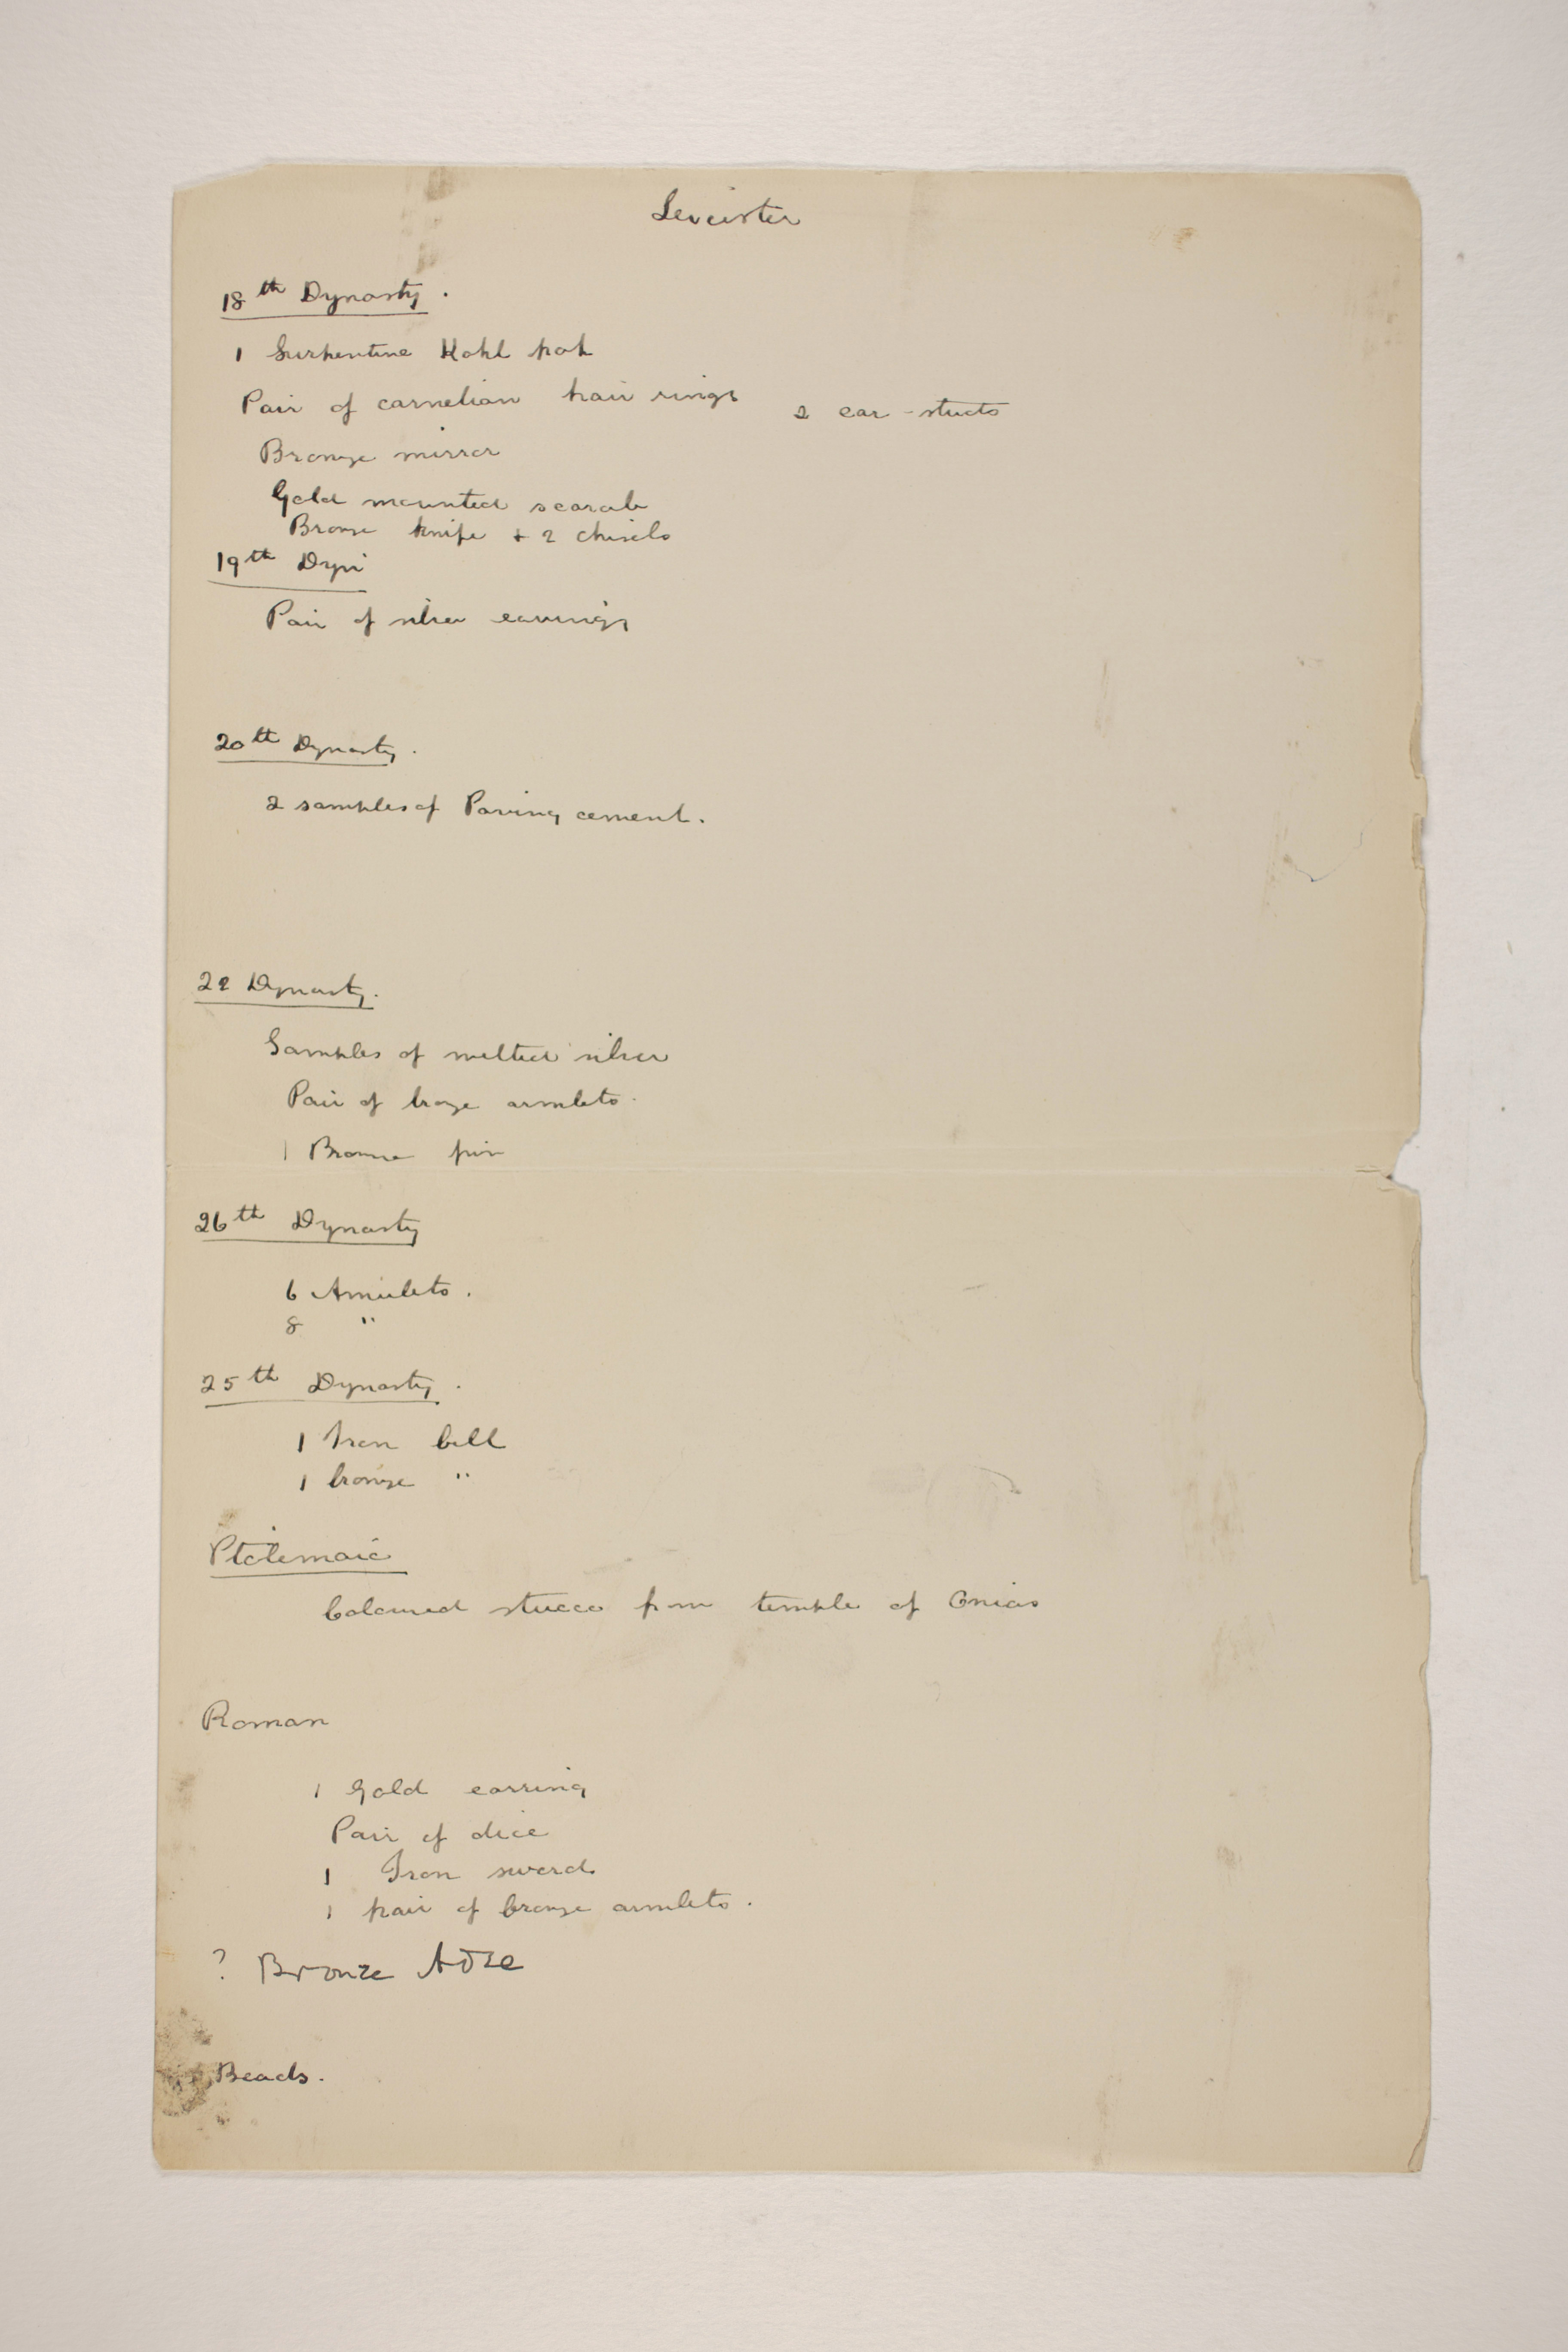 Leicester
18th Dynasty.
1 Serpentine Kohl pot
Pair of carnelian hair rings 2 ear-studs
Bronze mirror
Gold mounted scarab
Bronze knife + 2 chisels
19th Dyn
Pair of silver earrings
20th Dynasty.
2 samples of Paving cement.
22 Dynasty.
Samples of melted silver
Pair of bronze armlets.
1 Bronze pin
26th Dynasty
6 Amulets.
8 "
25th Dynasty.
1 Iron bell
1 bronze "
Ptolemaic
Coloured stucco from temple of Onias
Roman
1 Gold earring
Pair of dice
1 Iron sword
1 pair of bronze armlets.
? Bronze Adze
Beads.